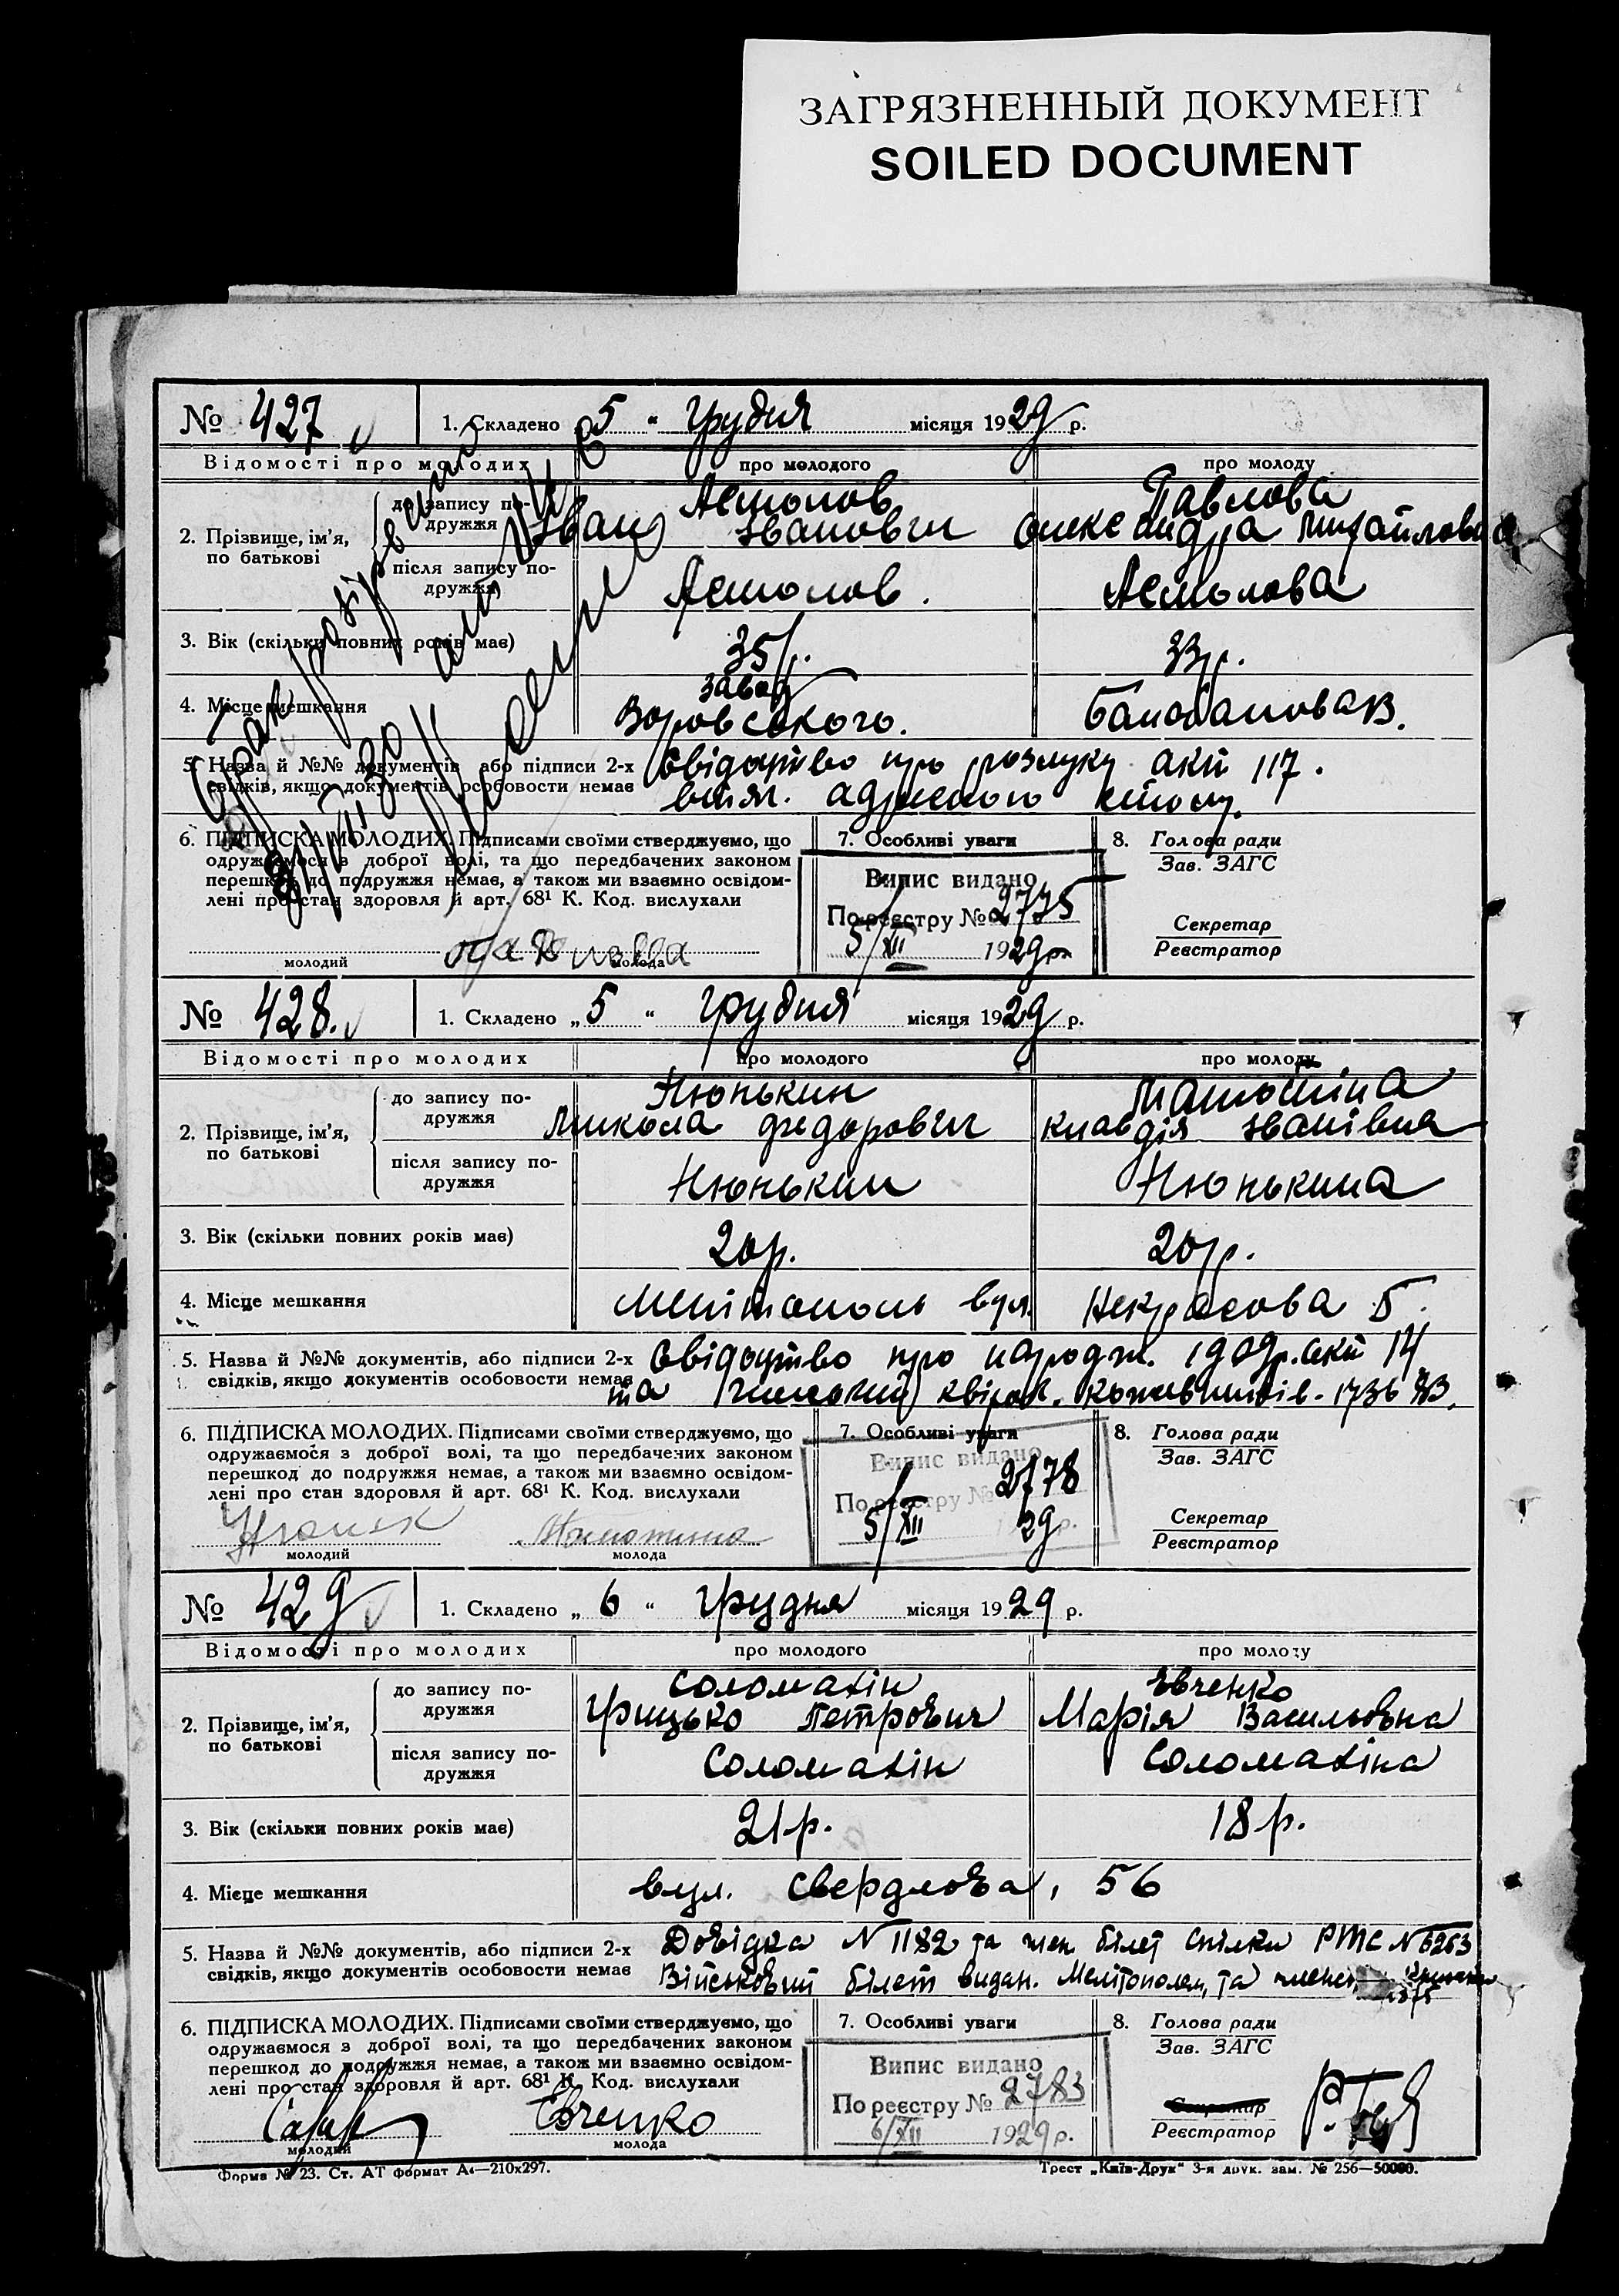 ЗАГРЯЗНЕННЫЙ ДОКУМЕНТ
SOILED DOCUMENT
№ 427
1. Складено „5“ грудня місяця 1929 р.
Відомості про молодих
про молодого
про молоду
2. Прізвище, ім'я, по батькові
до запису подружжя
Асмолов
Іван Іванович
Павлова
Олександра Михайловна
після запису подружжя
Асмолов.
Асмолова
3. Вік (скільки повних років має)
35 р.
33 р.
4. Місце мешкання
завод
Воровського.
5. Назва й №№ документів або підписи 2-х
свідків, якщо документів особовости немає
Свідоцтво про розлуку акт 117.
витяг. адресного столу.
Брак розірваний
6. ПІДПИСКА МОЛОДИХ. Підписами своїми стверджуємо, що
одружуємося з доброї волі, та що передбачених законом
перешкод до подружжя немає, а також ми взаємно освідом-
лені про стан здоровля й арт. 68¹ К. Код. вислухали
молодий
молода
7. Особливі уваги
Випис видано
По реєстру № 2775
5/XII 1929 р.
8. Голова ради
Зав. ЗАГС
Секретар
Реєстратор
№ 428.
1. Складено „5“ грудня місяця 1929 р.
Відомості про молодих
про молодого
про молоду
2. Прізвище, ім'я, по батькові
до запису подружжя
Нюнькин
Микола Федорович
Клавдія Іванівна
після запису подружжя
Нюнькин
Нюнькина
3. Вік (скільки повних років має)
20р.
20р.
4. Місце мешкання
Мелітополь вул. Некрасова 5.
5. Назва й №№ документів, або підписи 2-х
свідків, якщо документів особовости немає
Свідоцтво про народж. 1909р. акт 14
та членський квіток. 1736
6. ПІДПИСКА МОЛОДИХ. Підписами своїми стверджуємо, що
одружаємося з доброї волі, та що передбачених законом
перешкод до подружжя немає, а також ми взаємно освідом-
лені про стан здоровля й арт. 68¹ К. Код. вислухали
молодий
молода
7. Особливі уваги
Випис видано
По реєстру № 2778
5/XII 29 р.
8. Голова ради
Зав. ЗАГС
Секретар
Реєстратор
№ 429
1. Складено „6“ грудня місяця 1929 р.
Відомості про молодих
про молодого
про молоду
2. Прізвище, ім'я, по батькові
до запису подружжя
Соломахін
Грицько Петрович
Євченко
Марія Васильовна
після запису подружжя
Соломахін
Соломахіна
3. Вік (скільки повних років має)
21р.
18р.
4. Місце мешкання
вул. Свердлова, 56
5. Назва й №№ документів, або підписи 2-х
свідків, якщо документів особовости немає
Довідка N 1182 та член. білет спілки РМС N 6263
Військовий білет видан. Мелітополем, та
6. ПІДПИСКА МОЛОДИХ. Підписами своїми стверджуємо, що
одружаємося з доброї волі, та що передбачених законом
перешкод до подружжя немає, а також ми взаємно освідом-
лені про стан здоровля й арт. 68¹ К. Код. вислухали
молодий
Євченко
молода
7. Особливі уваги
Випис видано
По реєстру № 2783
6/XII 1929 р.
8. Голова ради
Зав. ЗАГС
Секретар
Реєстратор
Форма № 23. Ст. АТ формат А₄—210х297.
Трест „Київ-Друк“ 3-я друк. зам. № 256—50000.